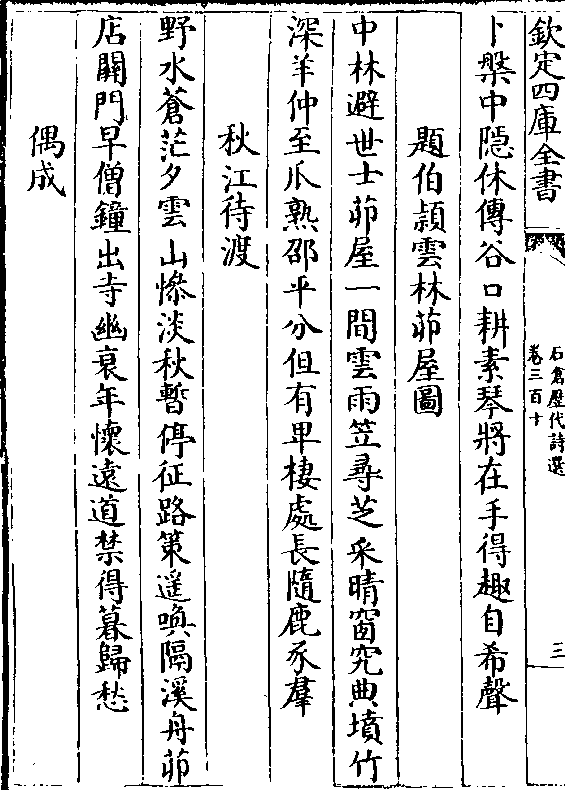 欽定四庫全書
石倉歷代詩選
卷三百十
三
卜槃中隱休傳谷口耕素琴將在手得趣自希聲
題伯頴雲林茆屋圖
中林避世士茆屋一間雲雨笠尋芝采晴窗究典墳竹
深羊仲至瓜熟邵平分但有畢棲處長隨鹿豕羣
秋江待渡
野水蒼茫夕雲山慘淡秋暫停征路策遥喚隔溪舟茆
店關門早僧鐘出寺幽衰年懷遠道禁得暮歸愁
偶成